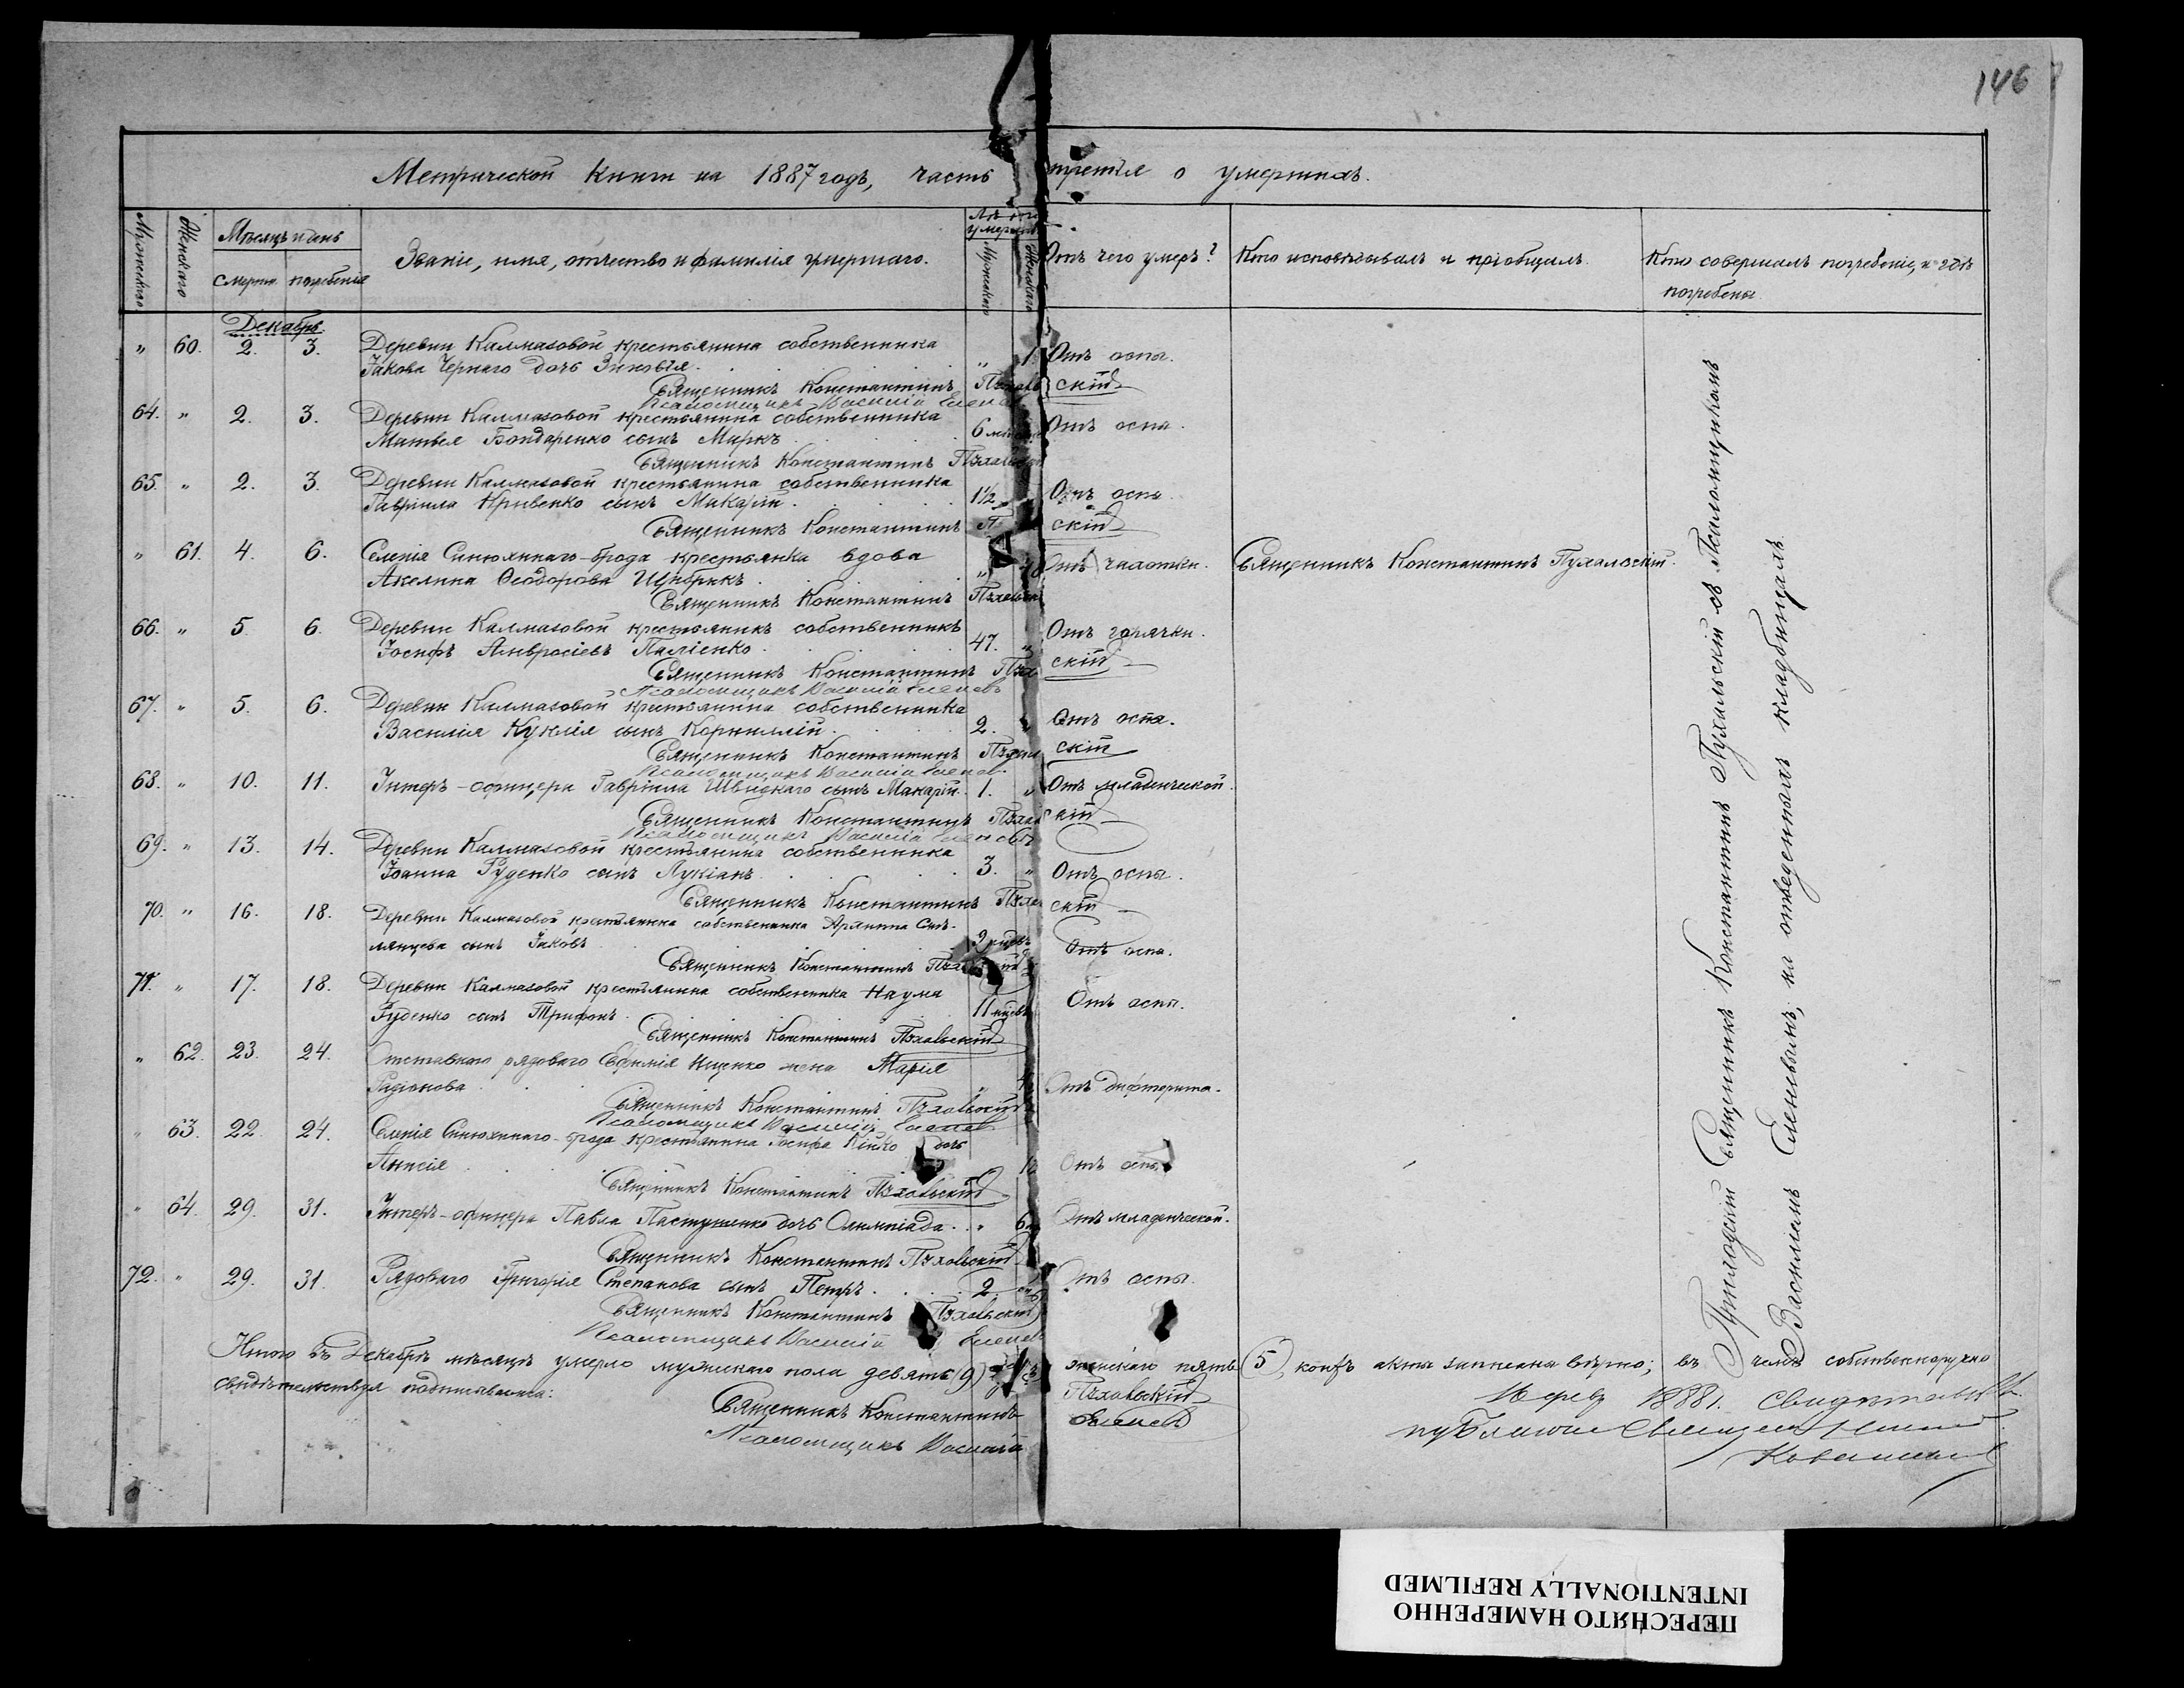 146
Метрической книги на 1887 годъ, часть третья о умершихъ.
Мужескаго
Женскаго
Мѣсяцъ и день
смерти погребенія
Званіе, имя, отчество и фамилія умершаго.
Лѣта
умершаго
Мужескаго
Женскаго
Отъ чего умеръ?
Кто исповѣдывалъ и пріобщалъ.
Кто совершалъ погребеніе, и гдѣ
погребены.
Декабрь.
" 60. 2. 3. Деревни Калмазовой крестьянина собственника
Іакова Чернаго дочь Зиновія. " 1. Отъ оспы.
Священникъ Константинъ Пухальскій
Псаломщикъ Василій
64. " 2. 3. Деревни Калмазовой крестьянина собственника
Матвея Бондаренко сынъ Маркъ. 6 Отъ оспы.
Священникъ Константинъ Пухальскій
65. " 2. 3. Деревни Калмазовой крестьянина собственника
Гавріила Кривенко сынъ Макарій. 1½ Отъ оспы.
Священникъ Константинъ скій
" 61. 4. 6. Селенія Синюхинаго-брода крестьянка вдова
Акелина Ѳеодорова " Отъ чахотки. Священникъ Константинъ Пухальскій.
Священникъ Константинъ Пухальскій
66. " 5. 6. Деревни Калмазовой крестьянинъ собственникъ
Іосифъ Амвросіевъ Паліенко. 47. " Отъ горячки.
Священникъ Константинъ Пухальскій
Псаломщикъ Василій
67. " 5. 6. Деревни Калмазовой крестьянина собственника
Василія Куклія сынъ Корнилій. 2. " Отъ оспы.
Священникъ Константинъ Пухальскій
Псаломщикъ Василій
68. " 10. 11. Унтеръ-офицера Гавріила сынъ Макарій. 1. " Отъ младенческой.
Священникъ Константинъ Пухальскій
Псаломщикъ Василій
69. " 13. 14. Деревни Калмазовой крестьянина собственника
Іоанна Руденко сынъ Лукіанъ. 3. " Отъ оспы.
Священникъ Константинъ Пухальскій
70. " 16. 18. Деревни Калмазовой крестьянина собственника
сынъ Іаковъ 2 Отъ оспы.
Священникъ Константинъ Пухальскій
71. " 17. 18. Деревни Калмазовой крестьянина собственника Наума
Руденко сынъ Трифонъ. 11 Отъ оспы.
Священникъ Константинъ Пухальскій
" 62. 23. 24. Отставнаго рядоваго Евфимія Ищенко жена Марія
Радіонова. " Отъ дифтерита.
Священникъ Константинъ Пухальскій
Псаломщикъ Василій
" 63. 22. 24. Селенія Синюхинаго-брода крестьянина Іосифа дочь
Анисія 12 Отъ оспы
Священникъ Константинъ Пухальскій
" 64. 29. 31. Унтеръ-офицера Павла Пастушенко дочь Олимпіада. " 6 Отъ младенческой.
Священникъ Константинъ Пухальскій
72. " 29. 31. Рядоваго Григорія Степанова сынъ Петръ. 2. Отъ оспы.
Священникъ Константинъ Пухальскій
Псаломщикъ Василій
Итого въ Декабрѣ мѣсяцѣ умерло мужескаго пола девять (9) женскаго пять (5), акты записаны вѣрно; въ чемъ собственноручно
свидѣтельствуя подписываемся:
Священникъ Константинъ Пухальскій
Псаломщикъ Василій
Приходскій Священникъ Константинъ Пухальскій съ Псаломщикомъ
Василіемъ на отведенныхъ кладбищахъ
ПЕРЕСНЯТО НАМЕРЕННО
INTENTIONALLY REFILMED